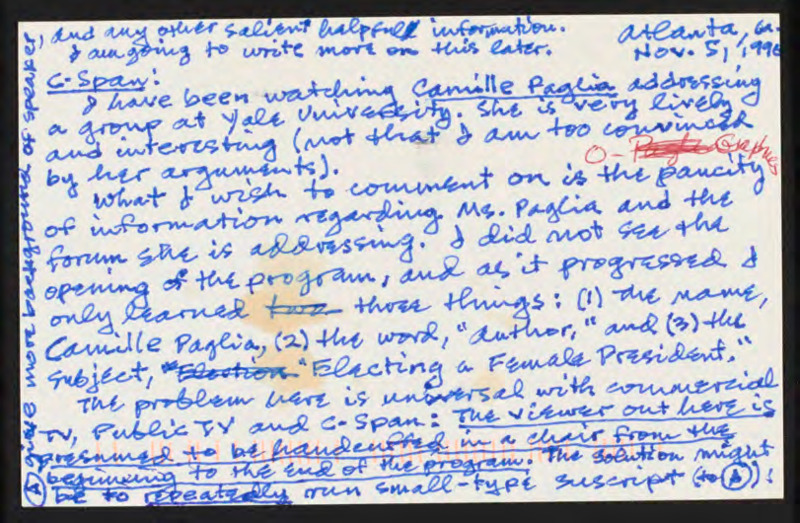 , and any other salient helpfull information.
I am going to write more on this later.
Atlanta, Ga.
Nov. 5, 1996
C-Span:
I have been watching Camille Paglia addressing
a group at Yale University. She is very lively
and interesting (not that I am too convinced
by her arguments).
O- Graphics
What I wish to comment on is the paucity
of information regarding Ms. Paglia and the
forum she is addressing. I did not see the
opening of the program, and as it progressed I
only learned two three things: (1) the name,
Camille Paglia, (2) the word, "author," and (3) the
subject, "Election "Electing a Female President."
The problem here is universal with commercial
TV, Public TV and C-Span: The viewer out here is
presumed to be handcuffed in a chair from the
beginning to the end of the program. The solution might
be to repeatedly run small-type suscript (to (A))!
(A) give more background of speaker